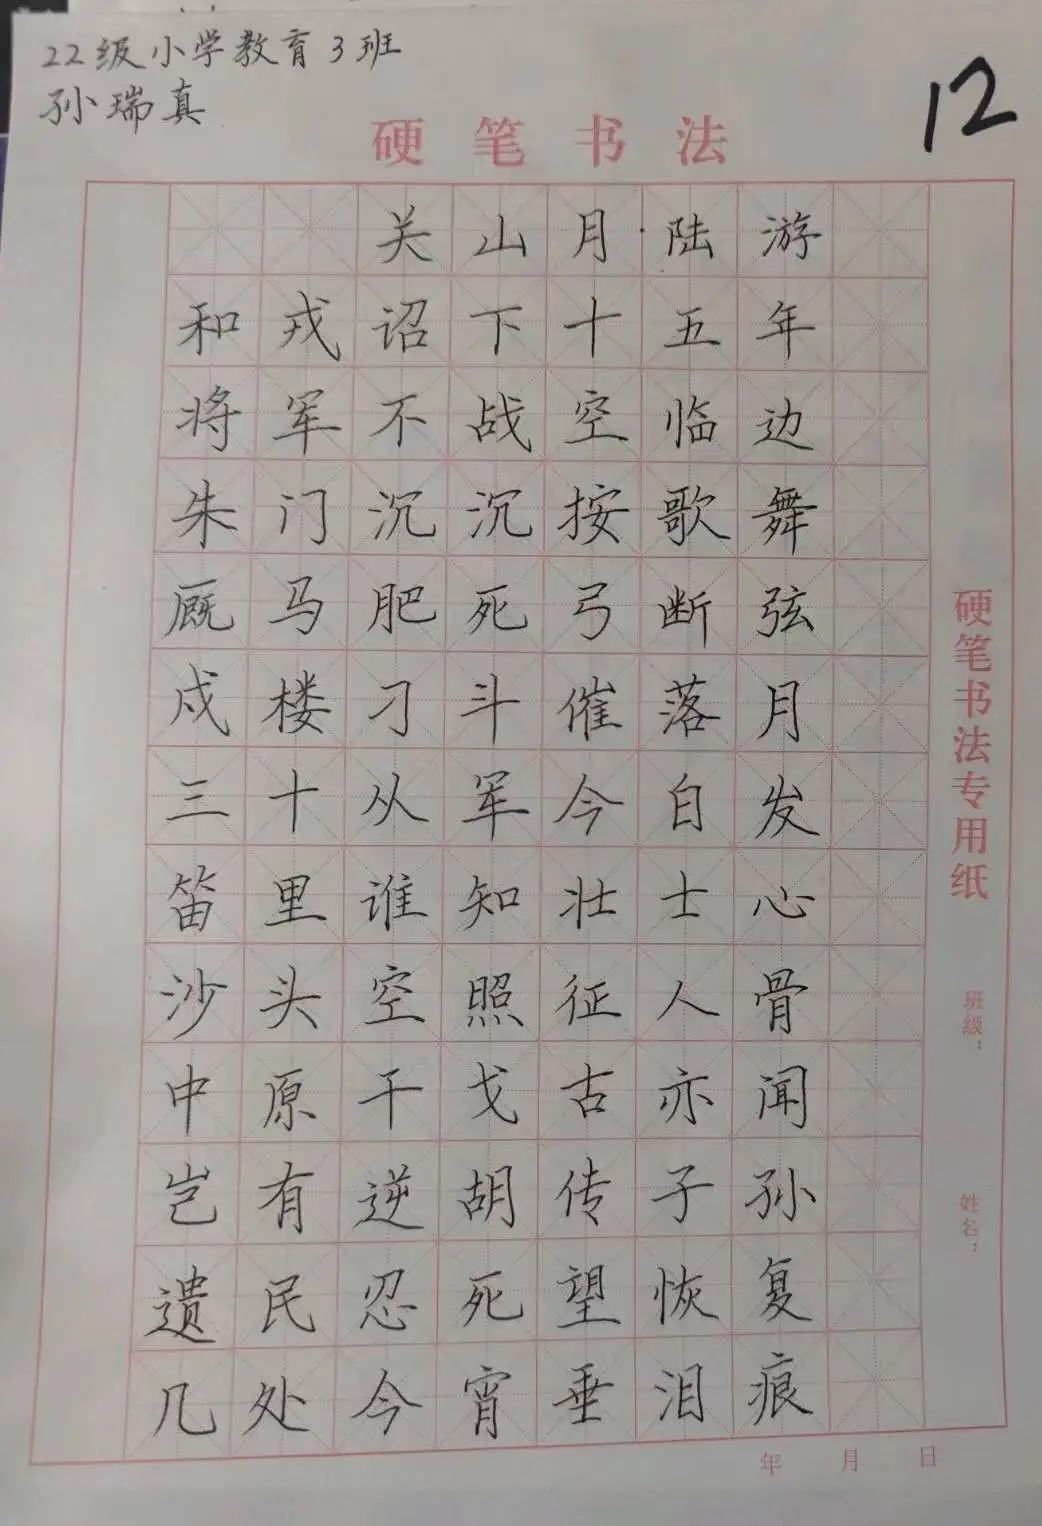 22级小学教育3班
孙瑞真
12
硬笔书法
关山月·陆游
和戎诏下十五年
将军不战空临边
朱门沉沉按歌舞
厩马肥死弓断弦
戍楼刁斗催落月
三十从军今白发
笛里谁知壮士心
沙头空照征人骨
中原干戈古亦闻
岂有逆胡传子孙
遗民忍死望恢复
几处今宵垂泪痕
硬笔书法专用纸
班级：
姓名：
年 月 日